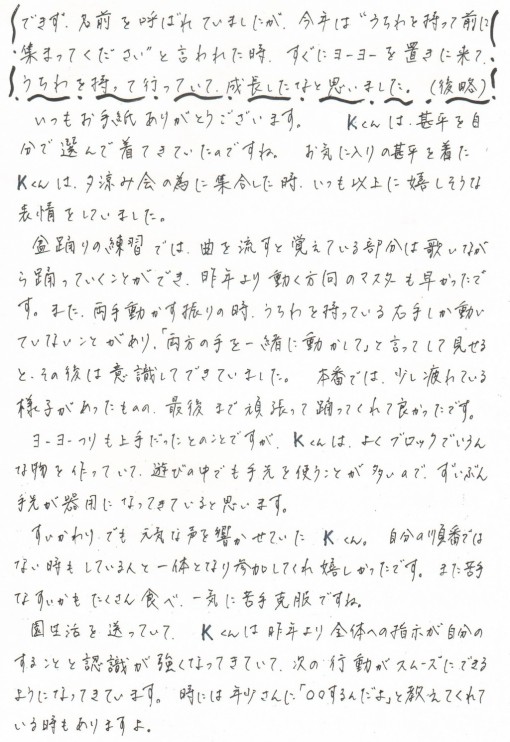 できず、名前を呼ばれていましたが、今年は“うちわを持って前に
集まってください”と言われた時、すぐにヨーヨーを置きに来て、
うちわを持って行っていて、成長したなと思いました。(後略)
いつもお手紙ありがとうございます。 Kくんは、甚平を自
分で選んで着てきていたのですね。 お気に入りの甚平を着た
Kくんは、夕涼み会の為に集合した時、いつも以上に嬉しそうな
表情をしていました。
盆踊りの練習では、曲を流すと覚えている部分は歌いなが
ら踊っていくことができ、昨年より動く方向のマスターも早かったで
す。また、両手動かす振りの時、うちわを持っている右手しか動い
ていないことがあり、「両方の手を一緒に動かして」と言ってして見せる
と、その後は意識してできていました。 本番では、少し疲れている
様子があったものの、最後まで頑張って踊ってくれて良かったです。
ヨーヨーつりも上手だったとのことですが、Kくんは、よくブロックでいろん
な物を作っていて、遊びの中でも手先を使うことが多いので、ずいぶん
手先が器用になってきていると思います。
すいかわりでも元気な声を響かせていた Kくん。 自分の順番では
ない時もしている人と一体となり参加してくれ嬉しかったです。また苦手
なすいかもたくさん食べ、一気に苦手克服ですね。
園生活を送っていて、 Kくんは昨年より全体への指示が自分の
することと認識が強くなってきていて、次の行動がスムーズにできる
ようになってきています。 時には年少さんに「○○するんだよ」と教えてくれて
いる時もありますよ。